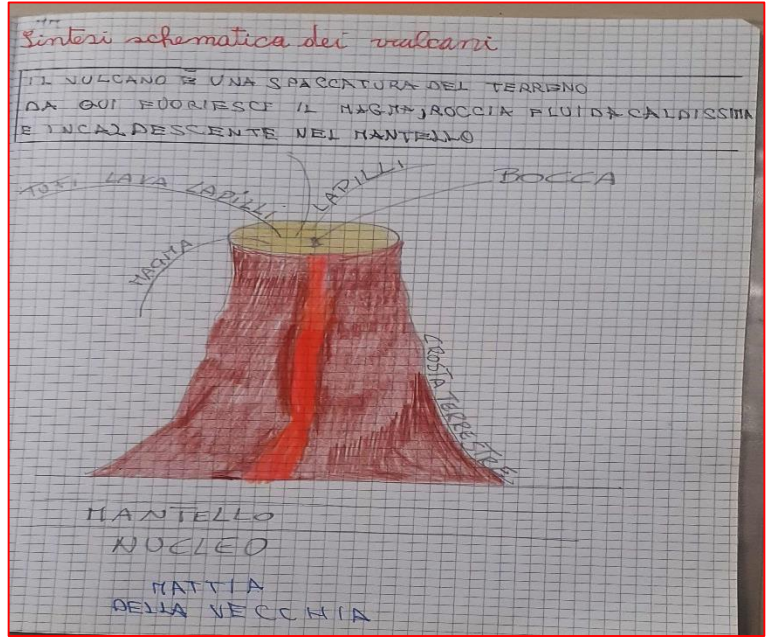 Sintesi schematica dei vulcani
IL VULCANO È UNA SPACCATURA DEL TERRENO
DA QUI FUORIESCE IL MAGMA, ROCCIA FLUIDA CALDISSIMA
E INCALDESCENTE NEL MANTELLO
LAPILLI
BOCCA
LAVA LAPILLI
MAGMA
CROSTA TERRESTRE
MANTELLO
NUCLEO
MATTIA
DELLA VECCHIA